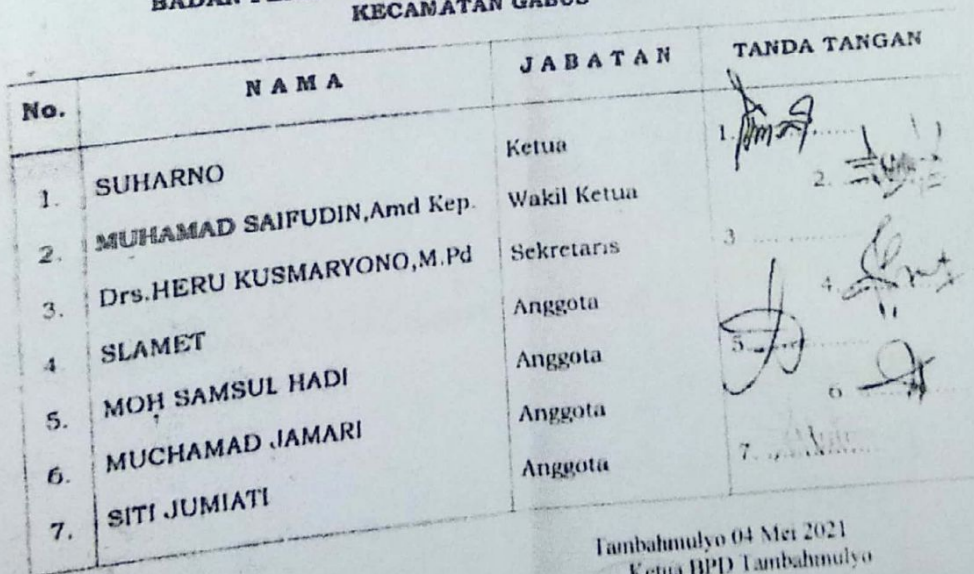 KECAMATAN GABUS
No. N A M A J A B A T A N TANDA TANGAN
1. SUHARNO Ketua 1.
2. MUHAMAD SAIFUDIN,Amd Kep. Wakil Ketua 2.
3. Drs.HERU KUSMARYONO,M.Pd Sekretaris 3
4. SLAMET Anggota 4.
5. MOH SAMSUL HADI Anggota 5.
6. MUCHAMAD JAMARI Anggota 6
7. SITI JUMIATI Anggota 7.
Tambahmulyo 04 Mei 2021
Ketua BPD Tambahmulyo